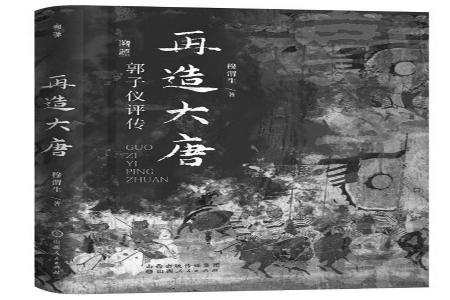 再造大唐
郭子仪评传
GUO
ZI
YI
PING
ZHUAN
穆渭生/著
山西出版传媒集团
山西人民出版社
再造大唐
穆渭生/著
山西人民出版社